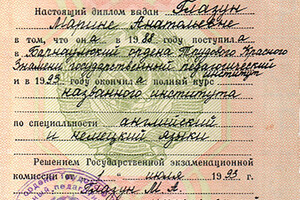 Настоящий диплом выдан Глазун
Марине Анатольевне
в том, что она в 1988 году поступила
в Барнаульский ордена Трудового Красного
Знамени государственный педагогический
институт
и в 1993 году окончила полный курс
названного института
по специальности английский
и немецкий языки
Решением Государственной экзаменационной
комиссии от 1 июля 1993 г.
Глазун М. А.